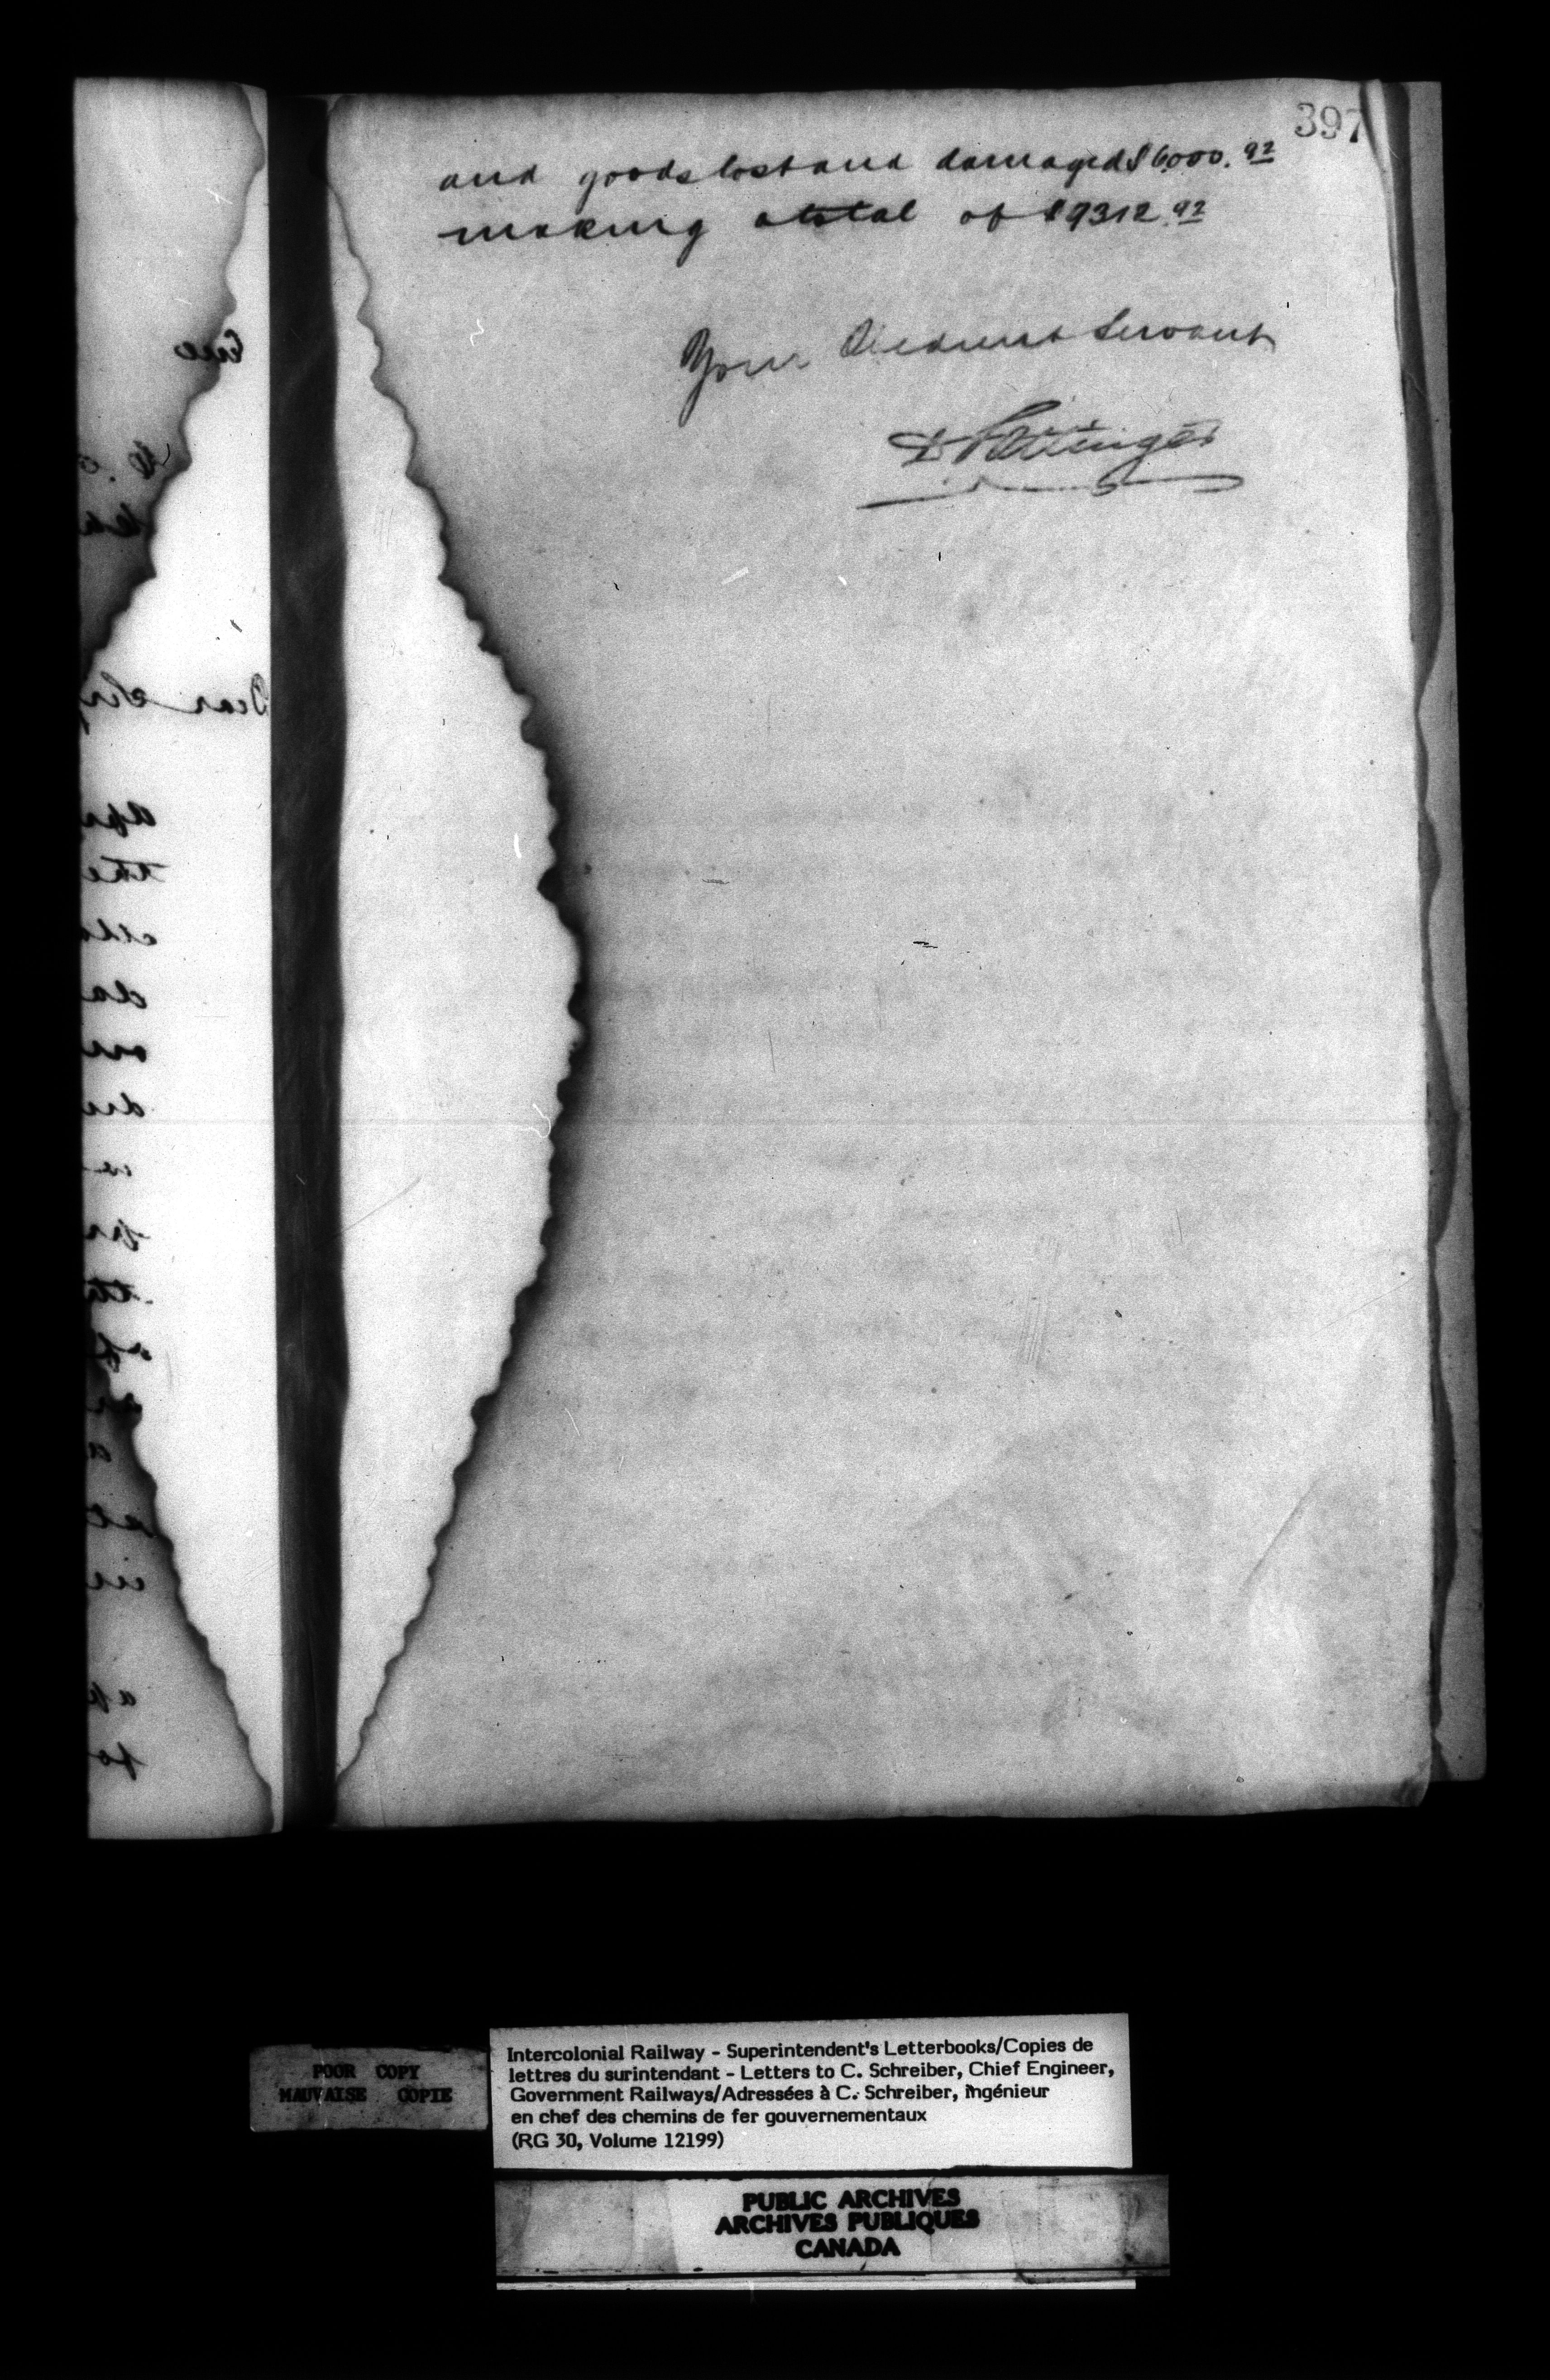 397
and goods lost and damaged $6000.92
making a total of $9312.92
Your Obedient Servant
D Pottinger
Dear Sir
the
POOR COPY
MAUVAISE COPIE
Intercolonial Railway - Superintendent's Letterbooks/Copies de
lettres du surintendant - Letters to C. Schreiber, Chief Engineer,
Government Railways/Adressées à C. Schreiber, ingénieur
en chef des chemins de fer gouvernementaux
(RG 30, Volume 12199)
PUBLIC ARCHIVES
ARCHIVES PUBLIQUES
CANADA